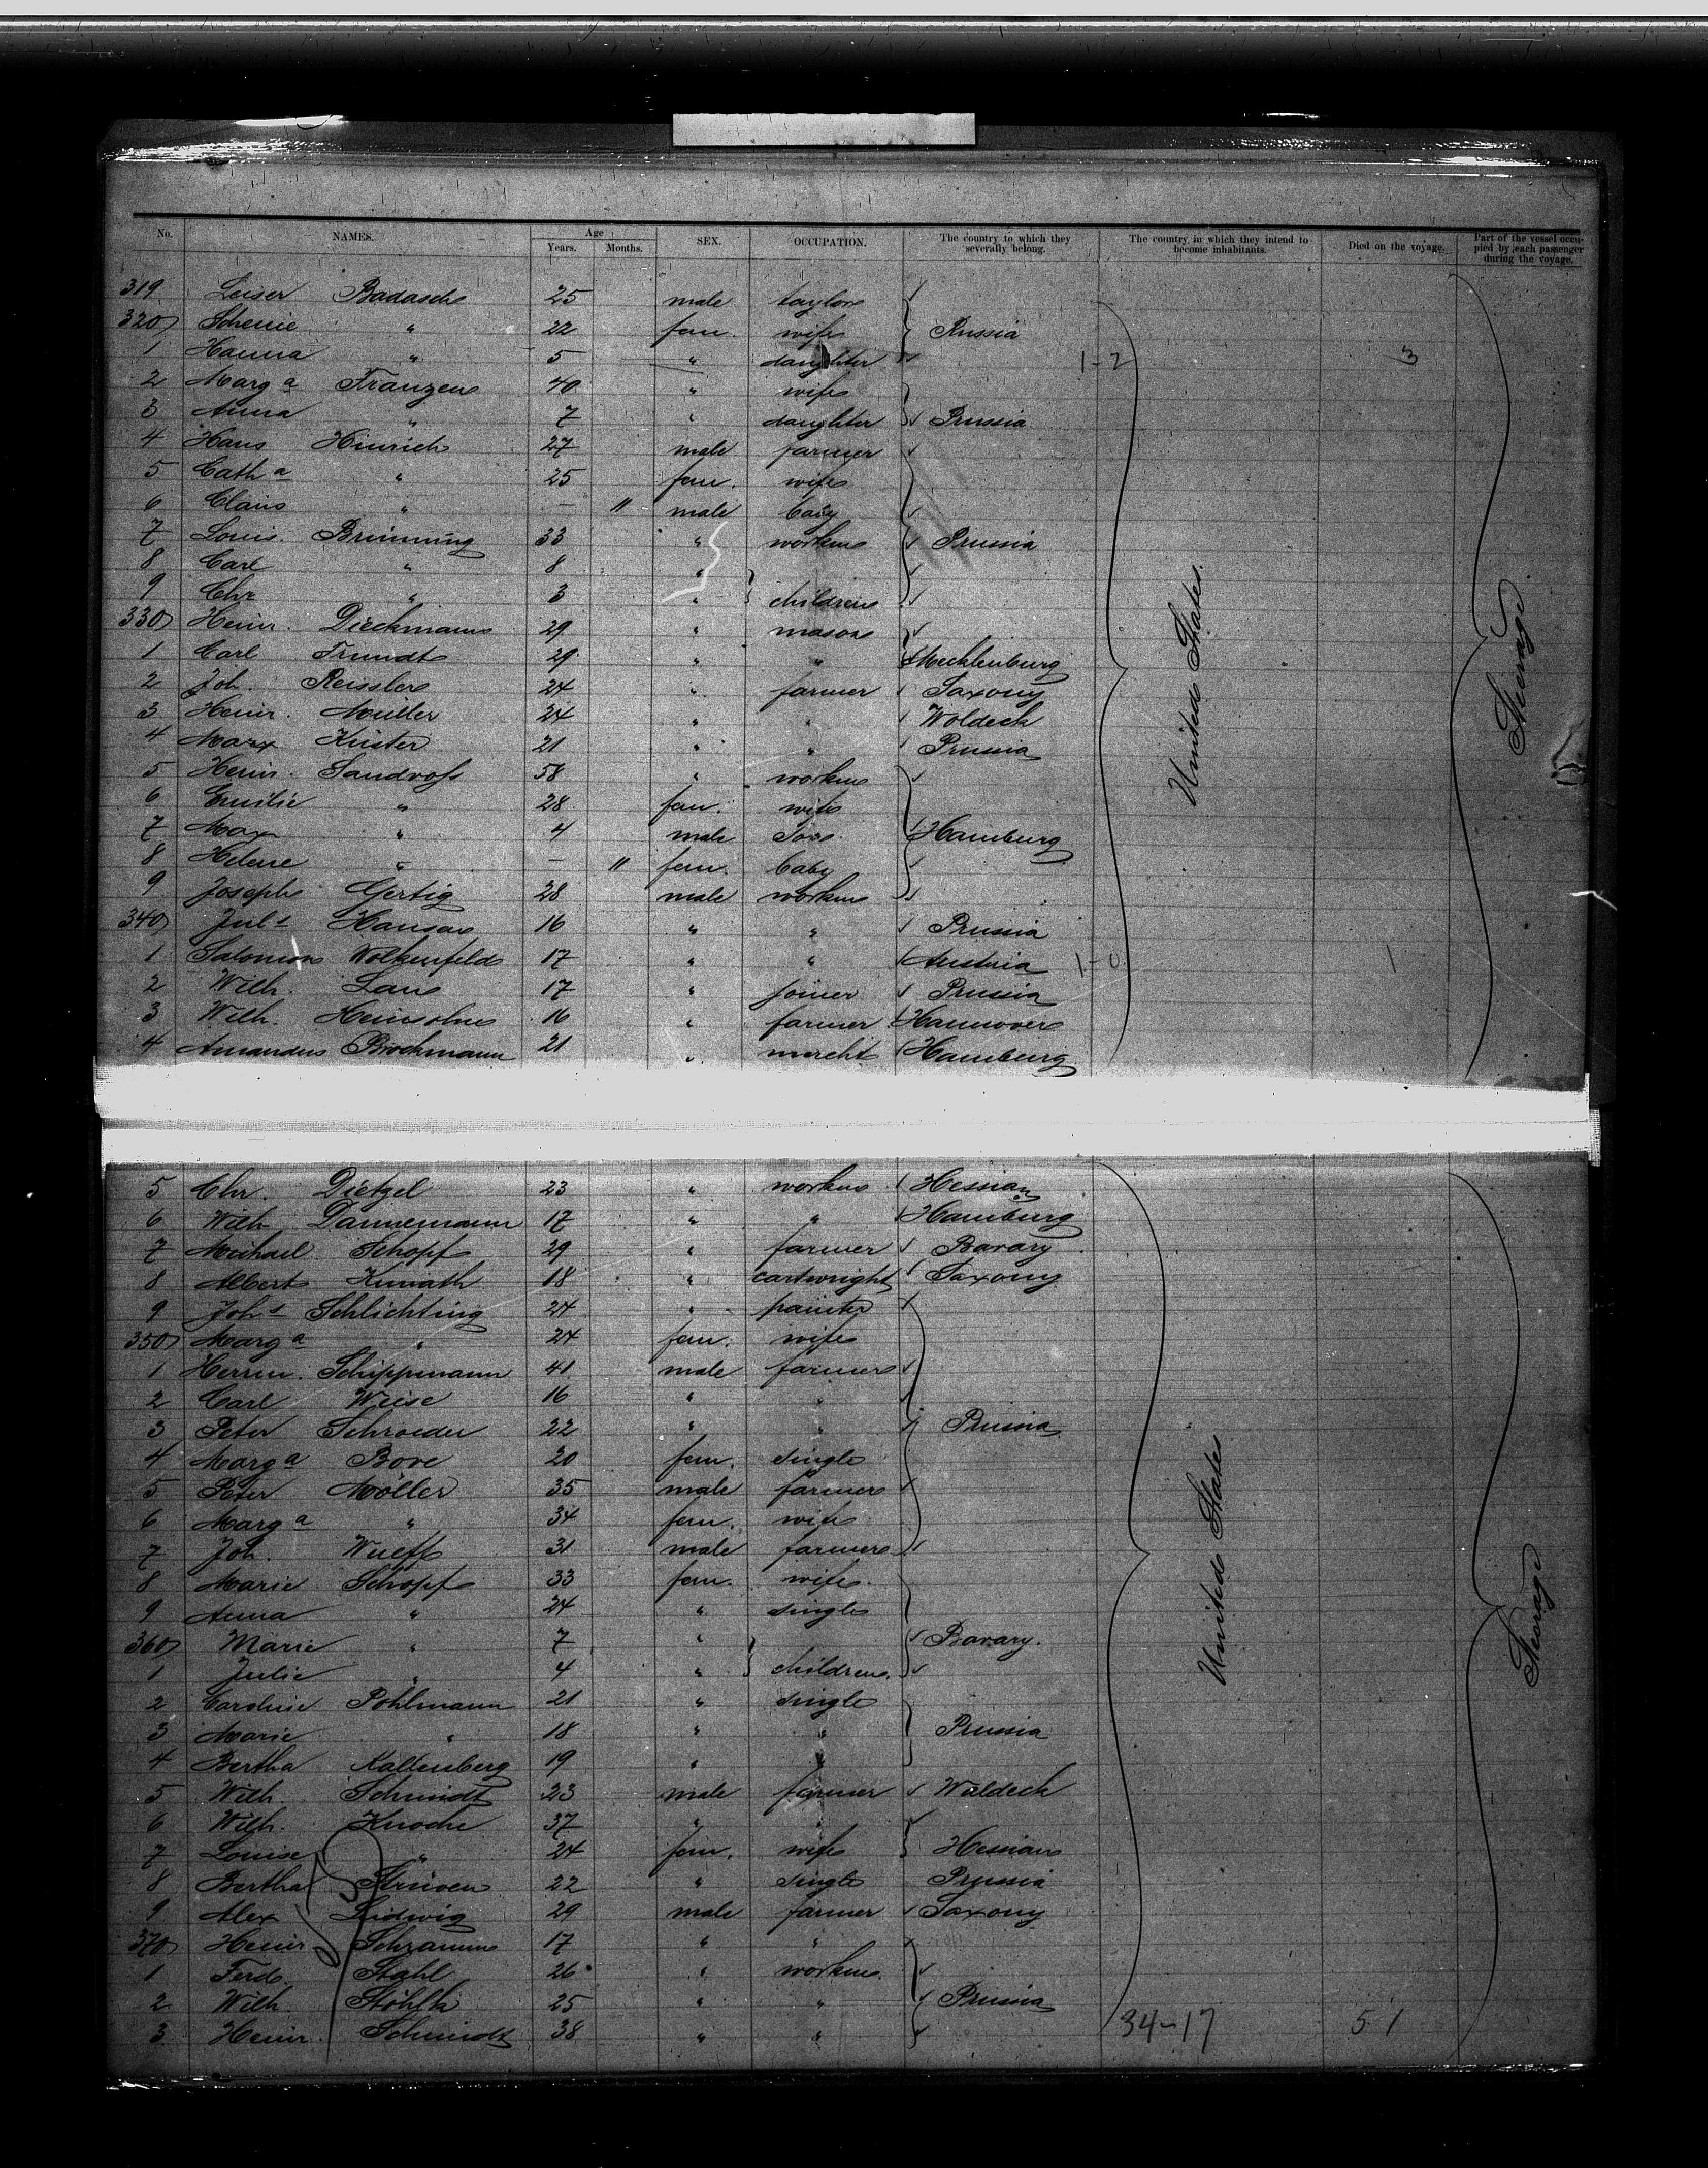 No. NAMES. Age Years. Months. SEX. OCCUPATION. The country to which they severally belong. The country in which they intend to become inhabitants. Died on the voyage. Part of the vessel occupied by each passenger during the voyage.
319 Leiser Badasch 25 male taylor
320 Scheine " 22 fem. wife Russia
1 Hanna " 5 " daughter 1-2 3
2 Marg a Franzen 40 " wife
3 Anna " 7 " daughter Prussia
4 Hans Hinrich 27 male farmer
5 Cath a " 25 fem. wife
6 Claus " — 11 male baby
7 Louis Brünning 33 " workm Prussia
8 Carl " 8 "
9 Chr " 3 " children
330 Heinr. Dieckmann 29 " mason
1 Carl Trundt 29 " " Mecklenburg
2 Joh. Reissler 24 " farmer Saxony
3 Heinr. Muller 24 " " Woldeck
4 Marx Küster 21 " " Prussia
5 Heinr. Sandvoss 58 " workm
6 Emilie " 28 fem. wife
7 Max " 4 male son Hamburg
8 Helene " — 11 fem. baby
9 Joseph Gertig 28 male workm
340 Jul s Hansen 16 " " Prussia
1 Salomon Wolkenfeld 17 " " Austria 1-0 1
2 Wilh. Lau 17 " joiner Prussia
3 Wilh. Heinsohn 16 " farmer Hannover
4 Amandus Brockmann 21 " mercht Hamburg
United States.
Steerage
5 Chr. Dietzel 23 " workm Hessian
6 Wilh. Dannemann 17 " " Hamburg
7 Michael Schopf 29 " farmer Bavary
8 Albert Kunath 18 " cartwright Saxony
9 Joh s Schlichting 24 " painter
350 Marg a " 24 fem. wife
1 Herrm. Schippmann 41 male farmer
2 Carl Weise 16 " "
3 Peter Schroeder 22 " " Prussia
4 Marg a Bove 20 fem. single
5 Peter Möller 35 male farmer
6 Marg a " 34 fem. wife
7 Joh. Wulff 31 male farmer
8 Marie Schopf 33 fem. wife
9 Anna " 24 " single
360 Marie " 7 " Bavary.
1 Julie " 4 " children
2 Caroline Pohlmann 21 " single
3 Marie " 18 " " Prussia
4 Bertha Kaltenberg 19 " "
5 Wilh. Schmidt 23 male farmer Waldeck
6 Wilh. Knoche 37 " "
7 Louise " 24 fem. wife Hessian
8 Bertha Strüven 22 " single Prussia
9 Alex Ludwig 29 male farmer Saxony
370 Heinr Schramm 17 " "
1 Ferd. Stahl 26 " workm.
2 Wilh. Stöhlk 25 " " Prussia
3 Heinr. Schmidt 38 " " 34-17 51
United States
Steerage